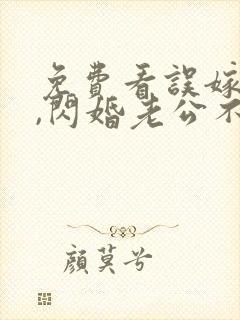 免費看誤嫁
,閃婚老公不
顏莫兮